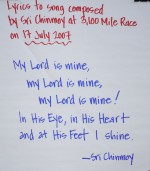 Lyrics to song composed
by Sri Chinmoy at 3,100 Mile Race
on 17 July 2007
My Lord is mine,
my Lord is mine,
my Lord is mine!
In His Eye, in His Heart
and at His Feet I shine.
—Sri Chinmoy